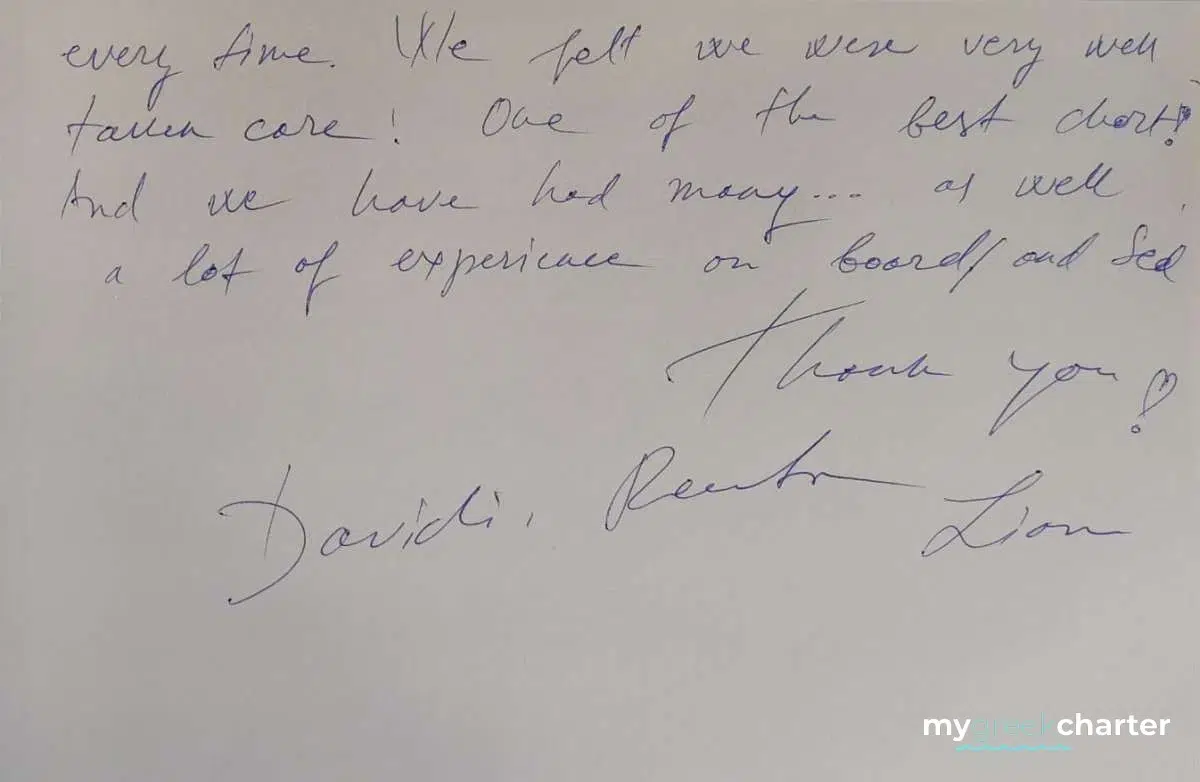 every time. We felt we were very well
taken care! One of the best chart!
And we have had many... as well
a lot of experience on board/ and Sea
Thank you!
Davidi,
Lion
mygreekcharter